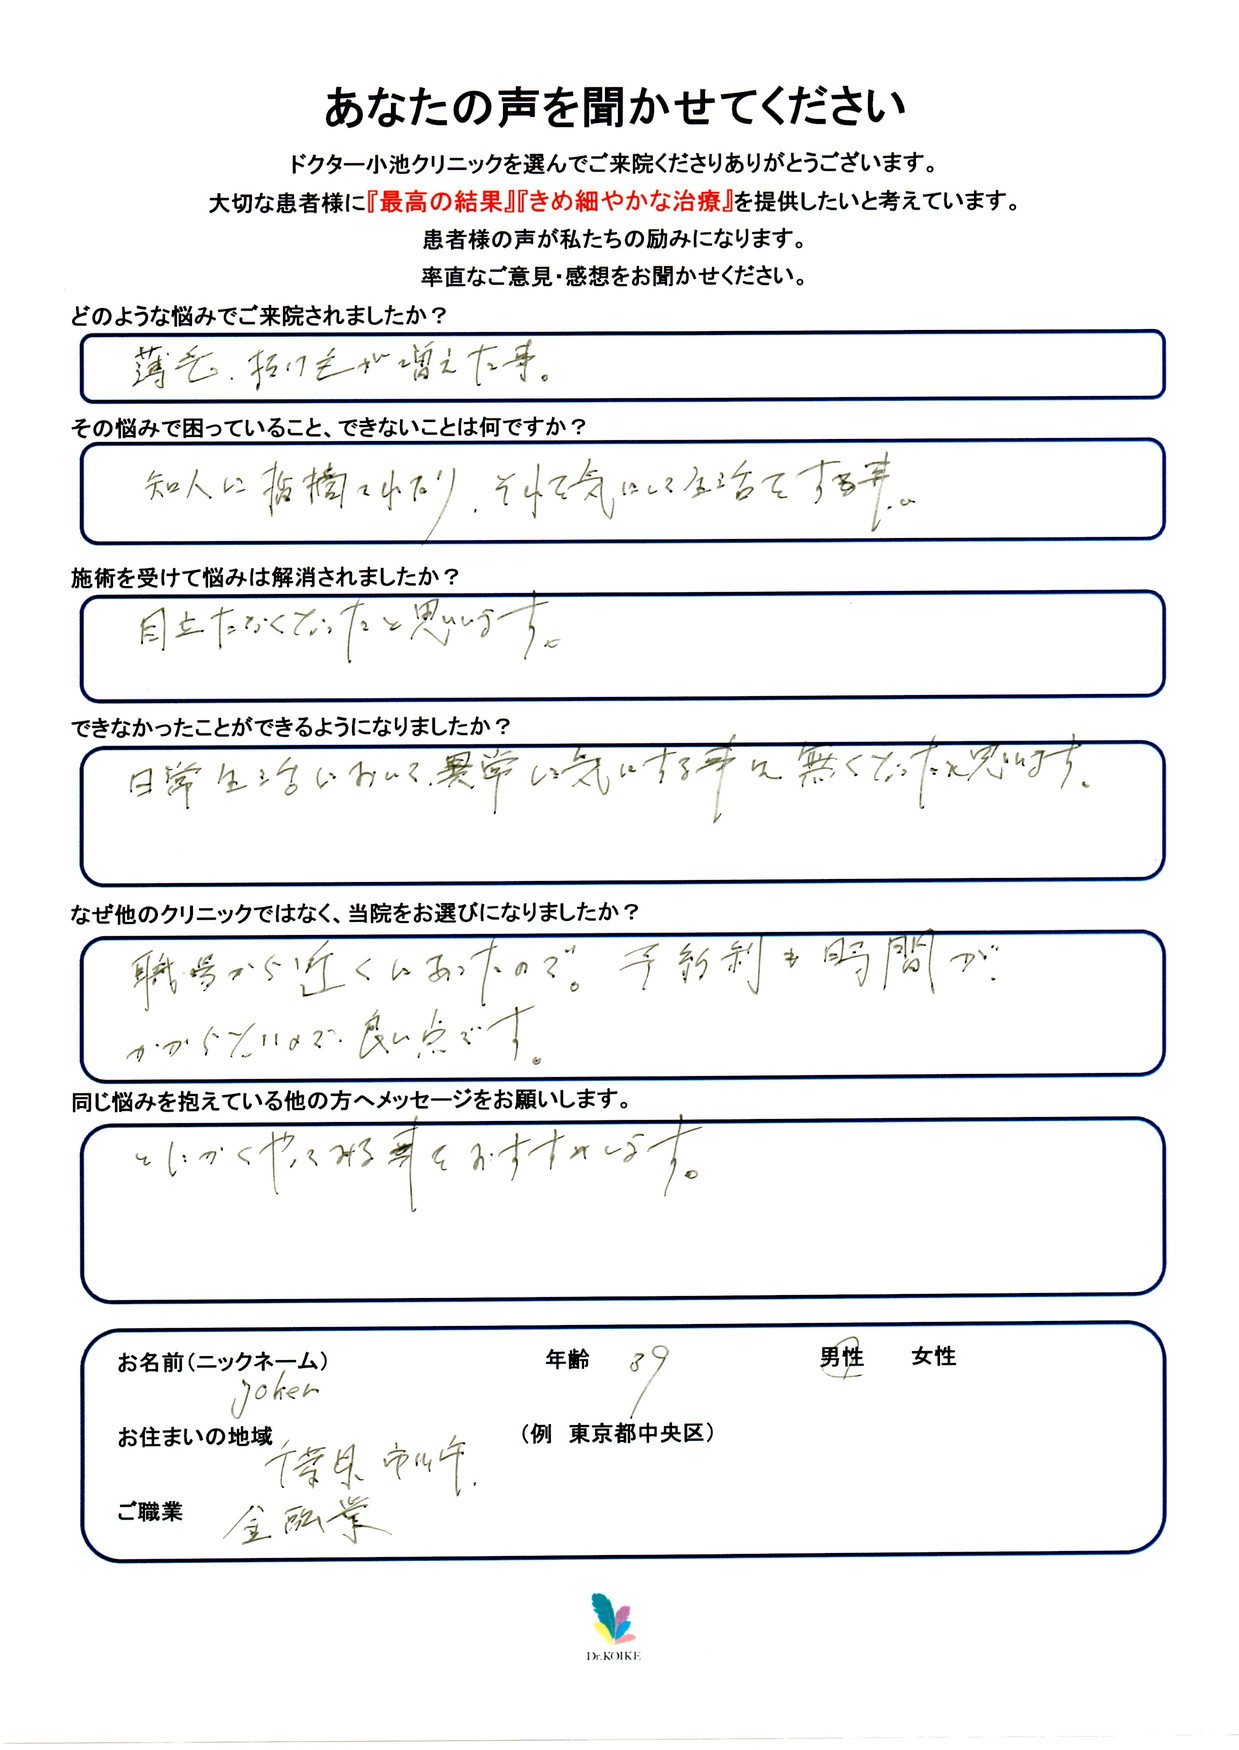 あなたの声を聞かせてください
ドクター小池クリニックを選んでご来院くださりありがとうございます。
大切な患者様に『最高の結果』『きめ細やかな治療』を提供したいと考えています。
患者様の声が私たちの励みになります。
率直なご意見・感想をお聞かせください。
どのような悩みでご来院されましたか？
薄毛、抜け毛が増えた事。
その悩みで困っていること、できないことは何ですか？
知人に指摘されたり、それを気にして生活をする事。
施術を受けて悩みは解消されましたか？
目立たなくなったと思います。
できなかったことができるようになりましたか？
日常生活において、異常に気にする事は無くなったと思います。
なぜ他のクリニックではなく、当院をお選びになりましたか？
職場から近くにあったので。予約制も時間が
かからないので、良い点です。
同じ悩みを抱えている他の方へメッセージをお願いします。
とにかくやってみる事をおすすめします。
お名前（ニックネーム） 年齢 39 男性 女性
joker
お住まいの地域 （例 東京都中央区）
千葉県 市川市
ご職業 金融業
Dr.KOIKE